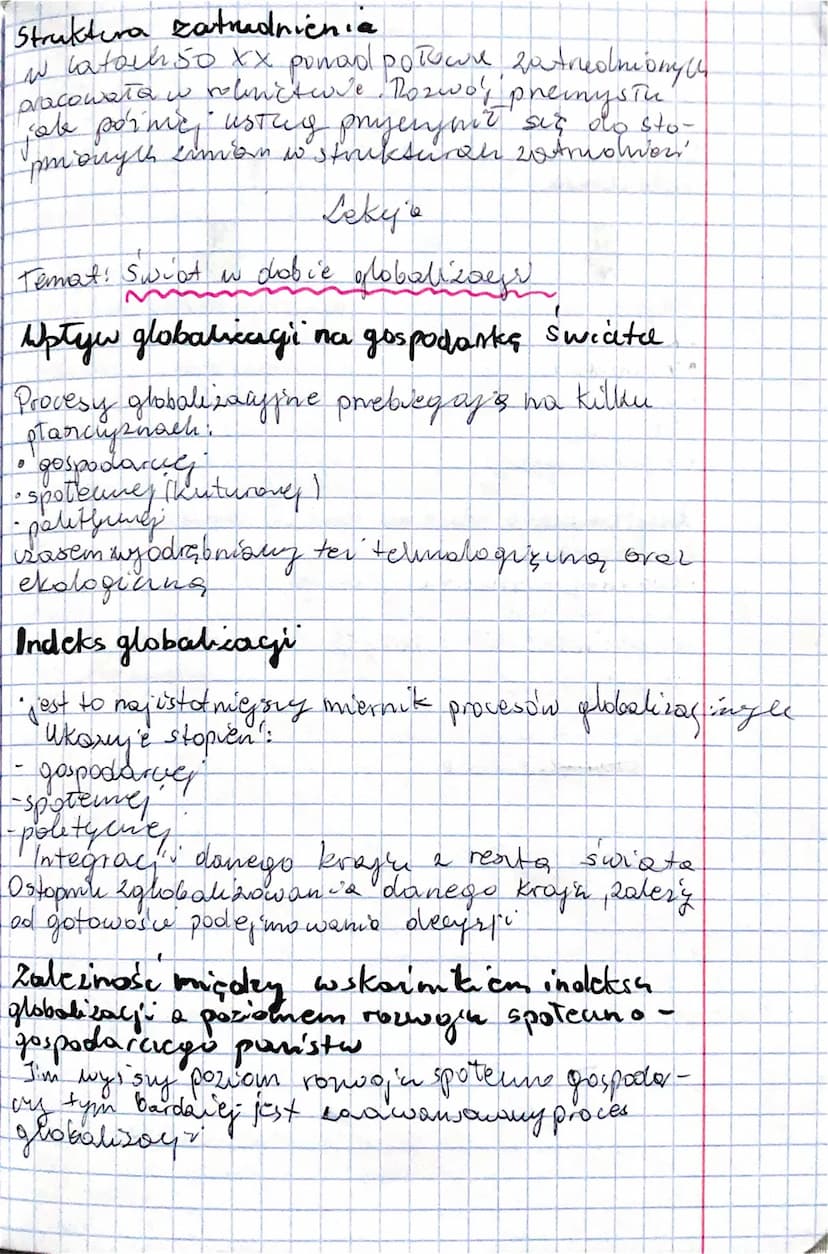 Struktura zatrudnienia
w latach 50 XX ponad połowa zatrudnionych
pracowała w rolnictwie. Rozwój przemysłu
jak później usług przyczynił się do sto-
pniowych zmian w strukturah zatrudnieni
Lekcja
Temat: Świat w dobie globalizacji
Wpływ globalizacji na gospodarkę świata
Procesy globalizacyjne przebiegają na kilku
płaszczyznach:
• gospodarczej
• społecznej (kuturowej)
- politycznej
czasem wyodrębniamy też technologiczną oraz
ekologiczną
Indeks globalizacji
• jest to najistotniejszy miernik procesów globalizacyjnych
Ukazuje stopień:
- gospodarczej
- społecznej
- politycznej
Integracji danego kraju z resztą świata
O stopniu zglobalizowania danego kraju, zależy
od gotowości podejmowania decyzji
Zależność między wskaźnikiem indeksu
globalizacji a poziomem rozwoju społeczno-
gospodarczego państw
Im wyższy poziom rozwoju społeczno gospodar-
czy tym bardziej jest zaawansowany proces
globalizacji